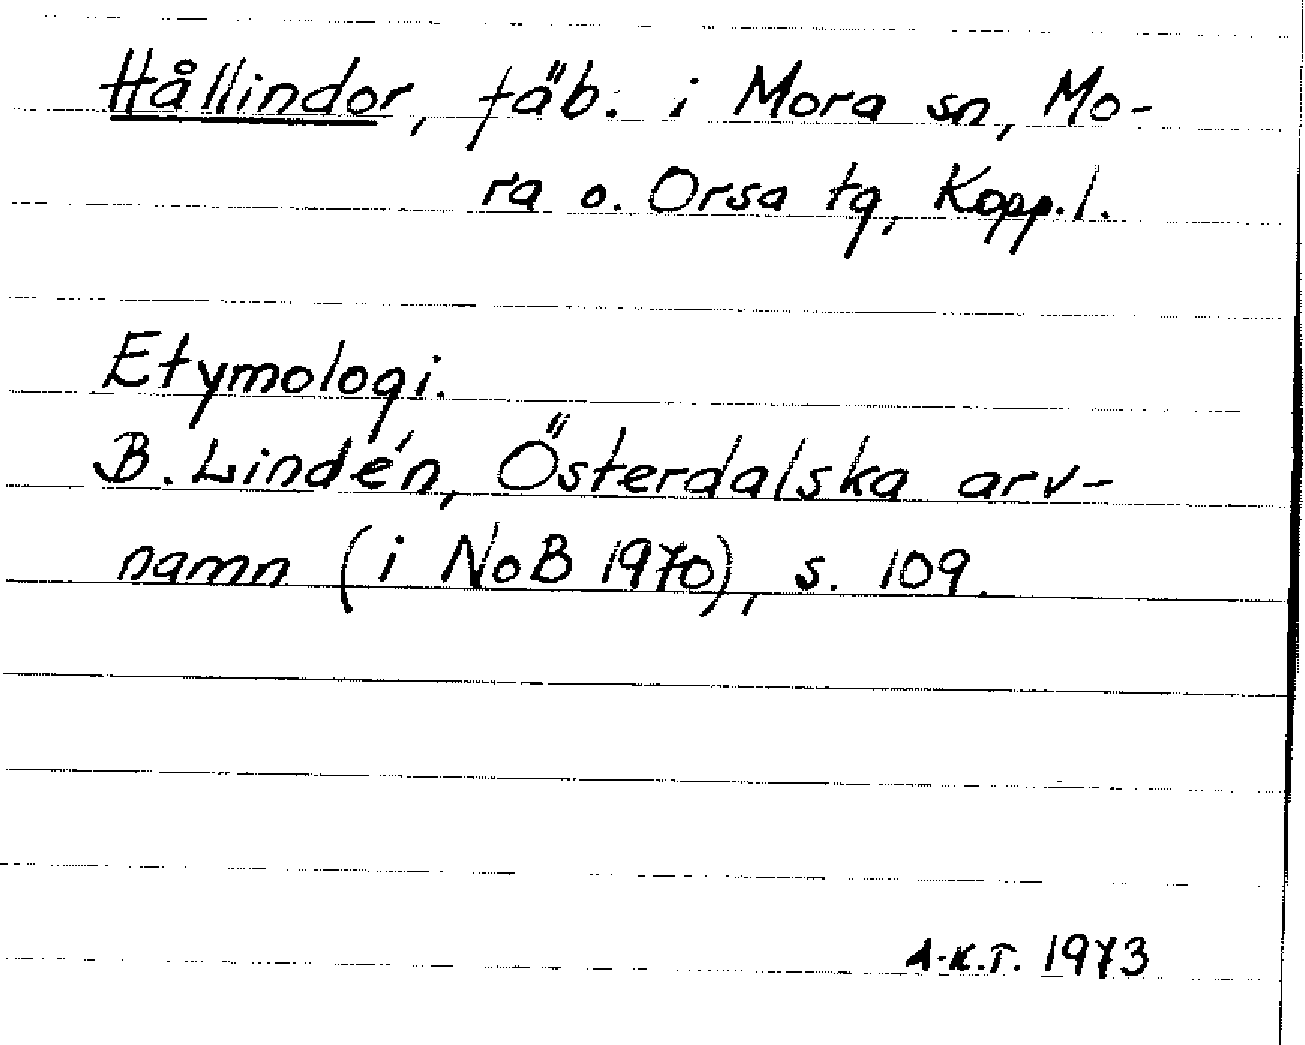 Hållindor, fäb. i Mora sn, Mo-
ra o. Orsa tg, Kopp.l.
Etymologi.
B. Lindén, Österdalska arv-
namn (i NoB 1970), s. 109.
A-K.T. 1973